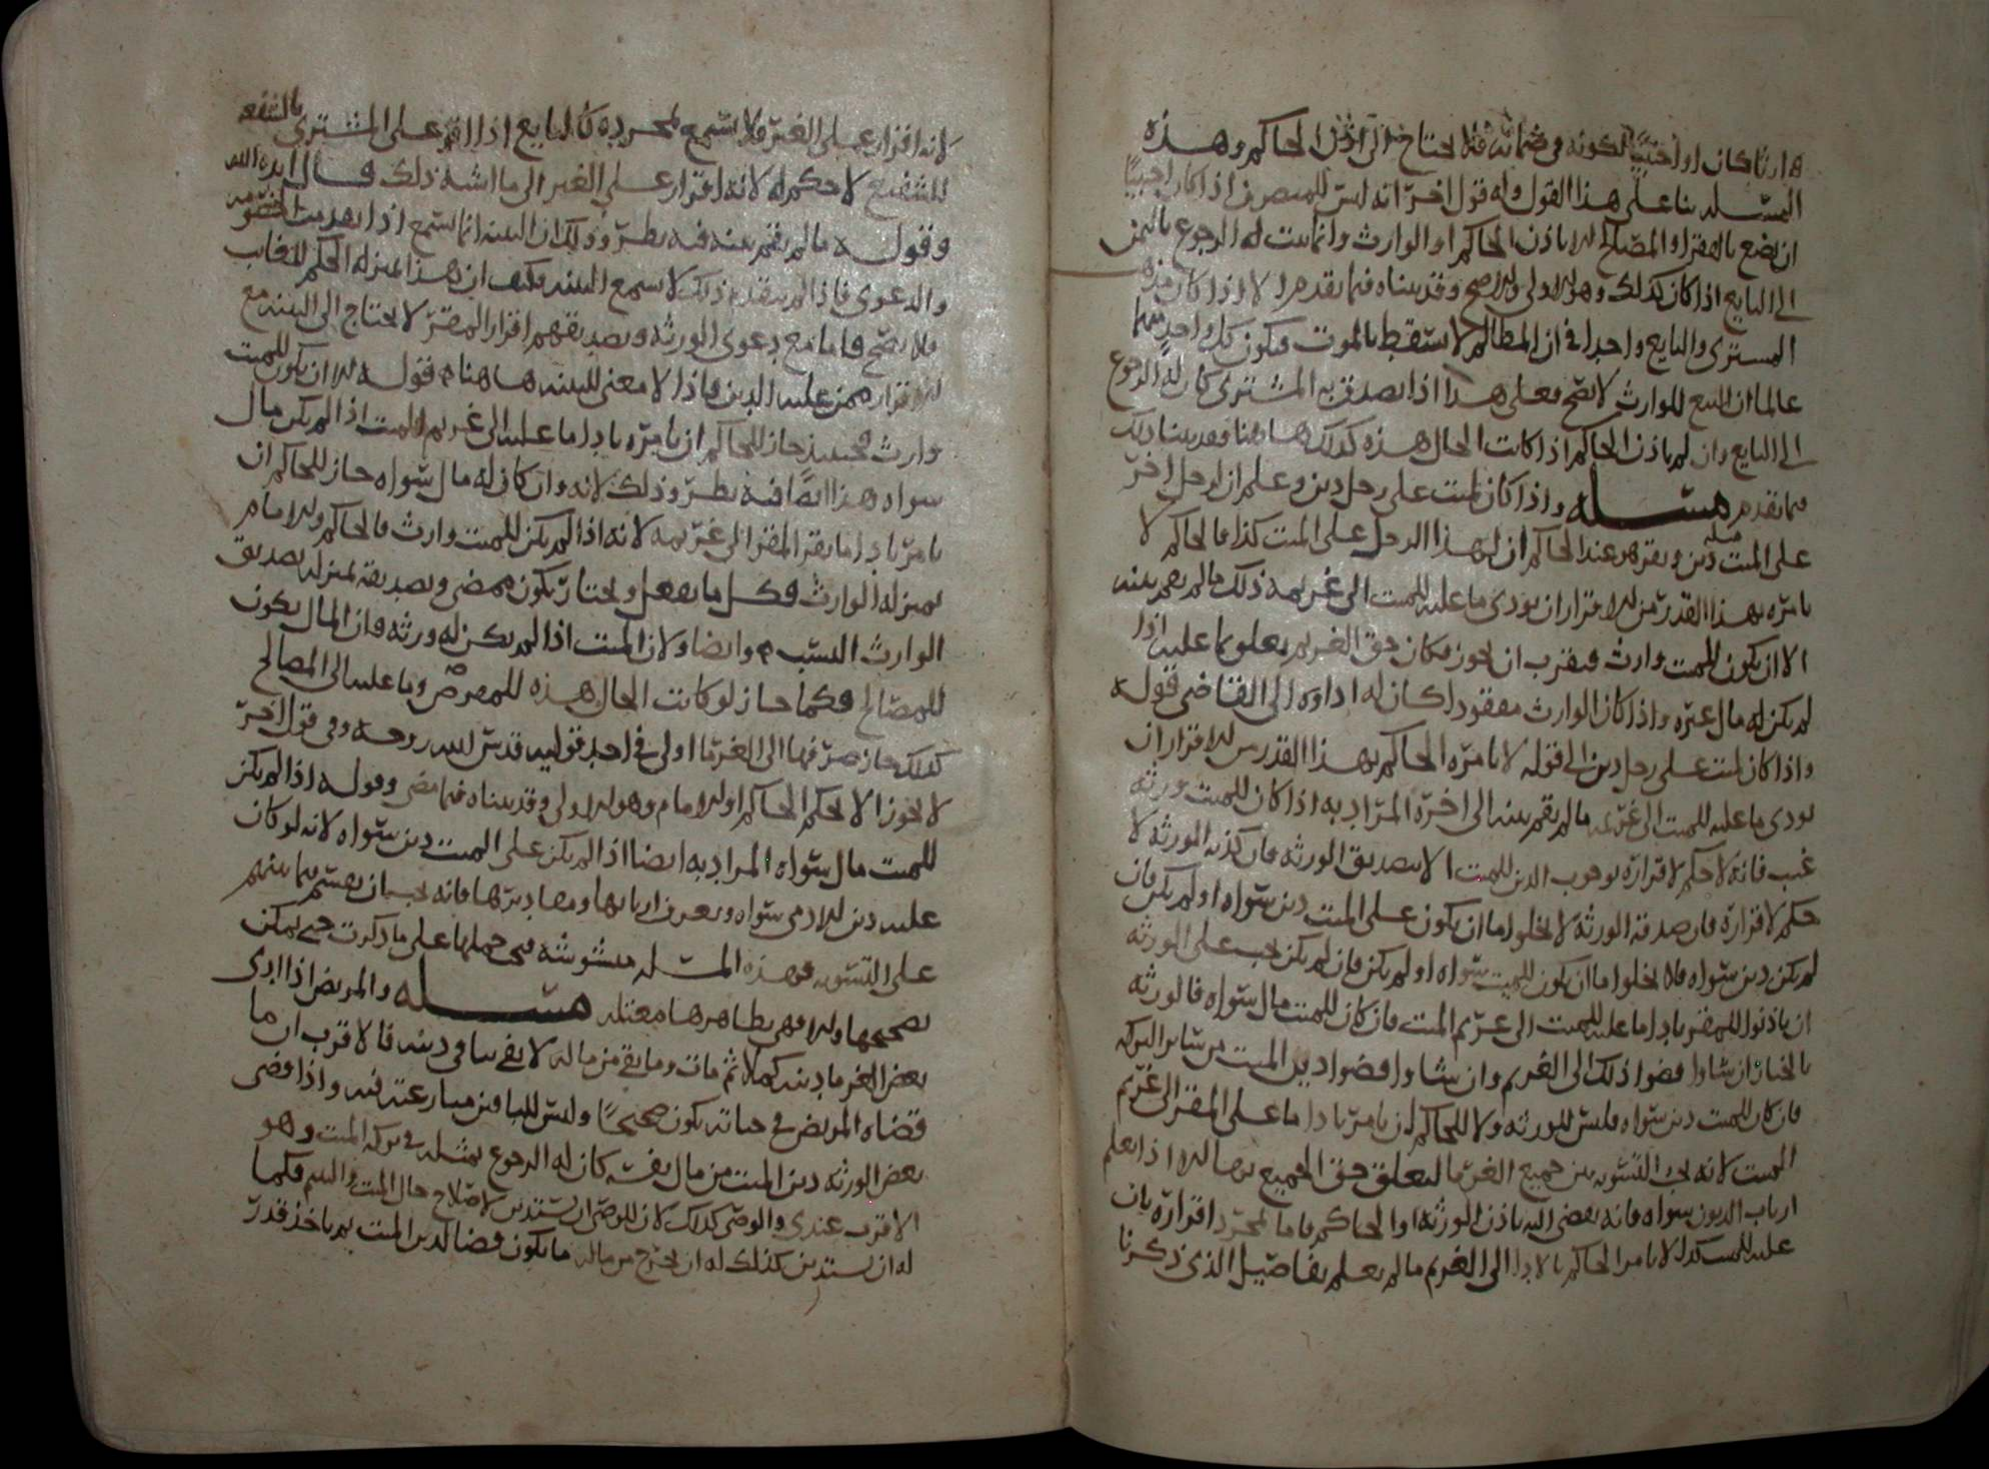 وارثا كان او اجنبيا لكونه في ضمانه فلا يحتاج الى اذن الحاكم وهذه
المسله بنا على هذا القول وله قول اخر انه ليس للمتصرف اذا كان اجنبيا
ان يضع بالفقرا والمصالح الا باذن الحاكم او الوارث وانما يثبت له الرجوع بالثمن
الى البايع اذا كان كذلك وهو الاولى والاصح وقد بيناه فيما تقدم الا اذا كان
المشترى والبايع واحدا في ان المطالم لا تسقط بالموت فيكون كل واحد منهما
عالما ان البيع للوارث لا يصح فعلى هذا اذا تصدق به المشترى كان له الرجوع
الى البايع وان لم ياذن الحاكم اذا كانت الحال هذه كذلك هاهنا فقد بينا ذلك
فيما تقدم مسله واذا كان لميت على رجل دين وعلم ان لرجل اخر
على الميت دين ويقر هو عند الحاكم ان لهذا الرجل على الميت كذا فالحاكم لا
يامره بهذا القدر من الاقرار ان يودى ما عليه للميت الى غريمه ذلك ما لم يقم بينه
الا ان يكون للميت وارث فيقرب ان يجوز فكان حق الغريم تعلق بما عليه اذا
لم يكن له مال غيره واذا كان الوارث مفقودا كان له اداوه الى القاضى قوله
واذا كان لميت على رجل دين الى قوله لا يامره الحاكم بهذا القدر من الاقرار ان
يودى ما عليه للميت الى غريمه ما لم يقم بينه الى اخره المراد به اذا كان للميت ورثه
غيب فانه لا حكم لاقراره بوجوب الدين للميت الا بتصديق الورثه فان كذبه الورثه لا
حكم لاقراره فان صدقه الورثه لا يخلو اما ان يكون على الميت دين سواه او لم يكن فان
لم يكن دين سواه فلا يخلوا اما ان يكون للميت سواه او لم يكن فان لم يكن يجب على الورثه
ان ياذنوا للمقر بادا ما عليه للميت الى غريم الميت فان كان للميت مال سواه فالورثه
بالخيار ان شاوا قضوا ذلك الى الغريم وان شاوا قضوا دين الميت من ساير التركه
فان كان للميت دين سواه فليس للورثه ولا للحاكم ان يامر بادا ما على المقر الى غريم
الميت لانه يجب التسويه بين جميع الغرما لتعلق حق الجميع بها الا اذا علم
ارباب الديون سواه فانه يقضى اليه باذن الورثه او الحاكم فاما لمجرد اقراره بان
عليه للميت كذا لا يامر الحاكم بالادا الى الغريم ما لم يعلم بتفاصيل الذى ذكرنا
لانه اقرار على الغير فلا يسمع لمجرده كالبايع اذا اقر على المشترى بالشفعه
للشفيع لا حكم له لانه اقرار على الغير الى ما اشبه ذلك قال ايده الله
وقوله ما لم يقم بينه فيه نظر وذلك ان البينه انما تسمع اذا تقدمت الخصومه
والدعوى فاذا لم يتقدم ذلك لا تسمع البينه فكيف ان هذا بمنزله الحكم للغايب
فلا يصح فاما مع دعوى الورثه وتصديقهم اقرار المقر لا يحتاج الى البينه مع
اقراره ممن عليه الدين فاذا لا معنى للبينه هاهنا قوله الا ان يكون للميت
وارث فحينئذ جاز للحاكم ان يامره بادا ما عليه الى غريم الميت اذا لم يكن مال
سواه هذا ايضا فيه نظر وذلك لانه وان كان له مال سواه جاز للحاكم ان
يامر بادا ما يقر المقر الى غريمه لانه اذا لم يكن للميت وارث فالحاكم والامام
بمنزله الوارث فكل ما يفعل ويختار يكون بمضى وتصديقه بمنزله تصديق
الوارث النسيب وايضا ولان الميت اذا لم يكن له ورثه فان المال يكون
للمصالح فكما جاز لو كانت الحال هذه للمقر صرف ما عليه الى المصالح
كذلك جاز صرفها الى الغرما اولى في احد قوليه قدس الله روحه وفى قول اخر
لا يجوز الا لحكم الحاكم او الامام وهو الاولى وقد بيناه فيما مضى وقوله اذا لم يكن
للميت مال سواه المراد به ايضا اذا لم يكن على الميت دين سواه لانه لو كان
عليه دين لادمى سواه ويعرف اربابها ومصادرها فانه يجب ان يقسم فيما بينهم
على التسويه فهذه المسله مشوشه فمتى حملها على ما ذكرت حتى يمكن
تصحيحها والا فهى بظاهرها معتله مسله والمريض اذا ادى
بعض الغرما دينه كملا ثم مات وما بقى من ماله لا يفى بباقى دينه فالاقرب ان ما
قضاه المريض في حياته يكون صحيحا وليس للباقين منازعته فيه واذا قضى
بعض الورثه دين الميت من مال نفسه كان له الرجوع بمثله في تركه الميت وهو
الاقرب عندى والوصى كذلك لان للوصى ان يستدين لاصلاح حال الميت واليتيم فكما
له ان يستدين كذلك له ان يخرج من ماله ما يكون قضا لدين الميت ثم ياخذ قدر